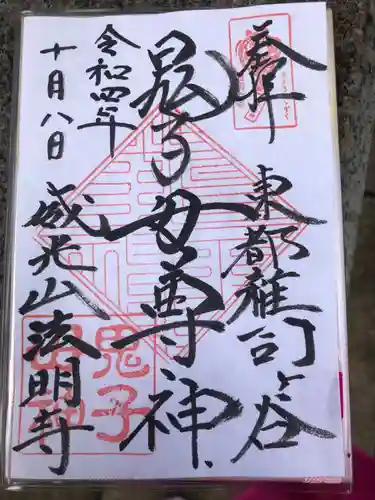 奉拝
東都雑司ヶ谷
鬼子母尊神
令和四年
十月八日
威光山法明寺
鬼子